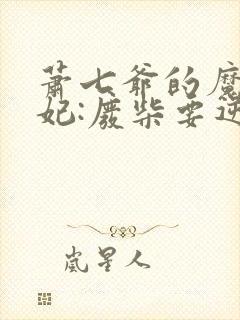 萧七爷的魔
妃:废柴要逆
岚星人